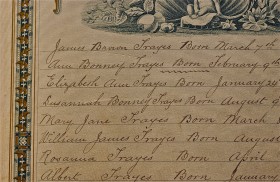 James Brown Frayes Born March 7th
Ann Bonney Frayes Born February 9th
Elizabeth Ann Frayes Born January 24
Susannah Bonney Frayes Born August
Mary Jane Frayes Born March
William James Frayes Born August
Rosanna Frayes Born April
Albert Frayes Born January